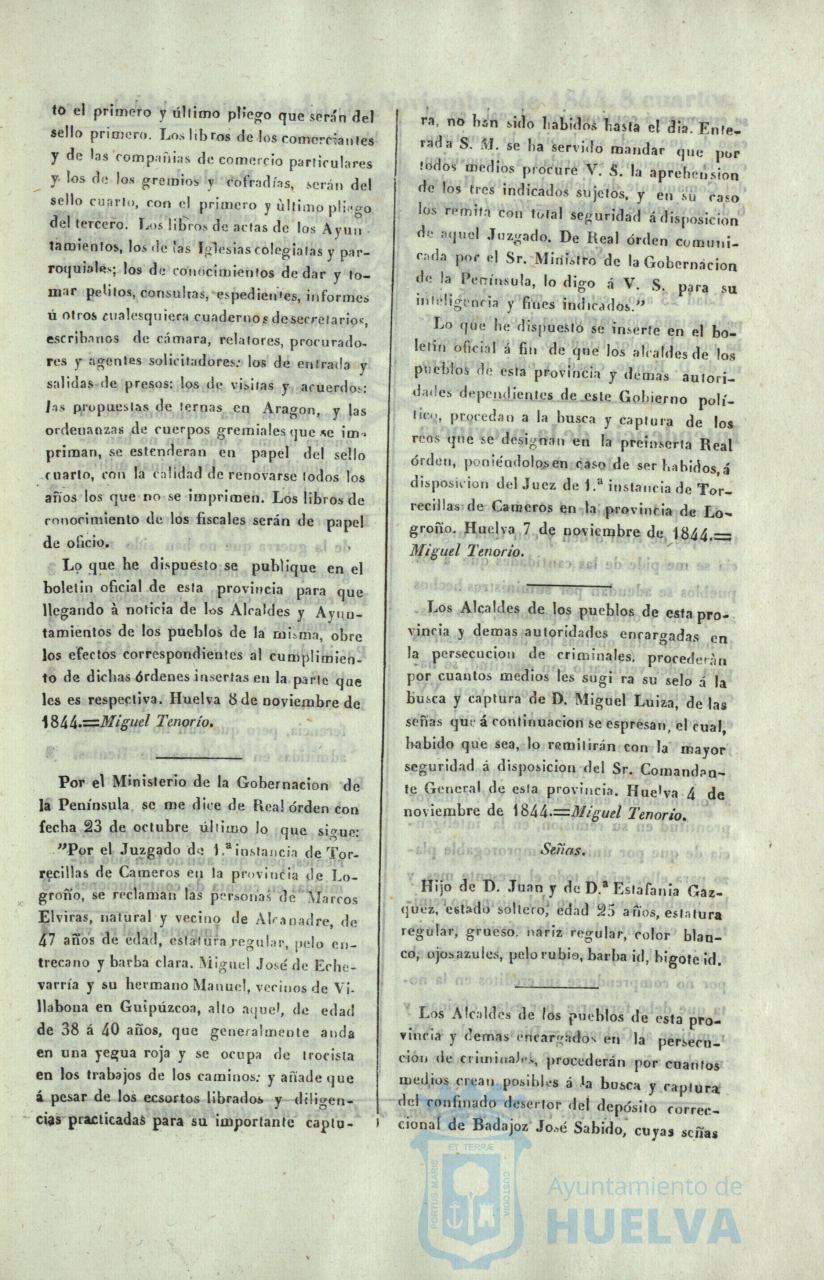 to el primero y último pliego que serán del
sello primero. Los libros de los comerciantes
y de las compañias de comercio particulares
y los de los gremios y cofradías, serán del
sello cuarto, con el primero y ùltimo pliego
del tercero. Los libros de actas de los Ayun-
tamientos, los de las Iglesias colegiatas y par-
roquiales; los de conocimientos de dar y to-
mar peitos, consultas, espedientes, informes
ú otros cualesquiera cuadernos de secretarios,
escribanos de cámara, relatores, procurado-
res y agentes solicitadores: los de entrada y
salidas de presos: los de visitas y acuerdos:
las propuestas de ternas en Aragon, y las
ordenanzas de cuerpos gremiales que se im-
priman, se estenderan en papel del sello
cuarto, con la calidad de renovarse todos los
años los que no se imprimen. Los libros de
conocimiento de los fiscales serán de papel
de oficio.
Lo que he dispuesto se publique en el
boletin oficial de esta provincia para que
llegando à noticia de los Alcaldes y Ayun-
tamientos de los pueblos de la misma, obre
los efectos correspondientes al cumplimien-
to de dichas órdenes insertas en la parte que
les es respectiva. Huelva 8 de noviembre de
1844.=Miguel Tenorio.
Por el Ministerio de la Gobernacion de
la Península se me dice de Real órden con
fecha 23 de octubre último lo que sigue:
"Por el Juzgado de 1.ª instancia de Tor-
recillas de Cameros en la provincia de Lo-
groño, se reclaman las personas de Marcos
Elviras, natural y vecino de Alcanadre, de
47 años de edad, estatura regular, pelo en-
trecano y barba clara. Miguel José de Eche-
varría y su hermano Manuel, vecinos de Vi-
llabona en Guipúzcoa, alto aquel, de edad
de 38 á 40 años, que generalmente anda
en una yegua roja y se ocupa de trocista
en los trabajos de los caminos: y añade que
á pesar de los ecsortos librados y diligen-
cias practicadas para su importante captu-
ra, no han sido habidos hasta el dia. Ente-
rada S. M. se ha servido mandar que por
todos medios procure V. S. la aprehension
de los tres indicados sujetos, y en su caso
los remita con total seguridad á disposicion
de aquel Juzgado. De Real órden comuni-
cada por el Sr. Ministro de la Gobernacion
de la Península, lo digo á V. S. para su
inteligencia y fines indicados."
Lo que he dispuesto se inserte en el bo-
letin oficial á fin de que los alcaldes de los
pueblos de esta provincia y demas autori-
dades dependientes de este Gobierno polí-
tico, procedan a la busca y captura de los
reos que se designan en la preinserta Real
órden, poniéndolos en caso de ser habidos, á
disposicion del Juez de 1.ª instancia de Tor-
recillas de Cameros en la provincia de Lo-
groño. Huelva 7 de noviembre de 1844.=
Miguel Tenorio.
Los Alcaldes de los pueblos de esta pro-
vincia y demas autoridades encargadas en
la persecucion de criminales, procederàn
por cuantos medios les sugi ra su selo á la
busca y captura de D. Miguel Luiza, de las
señas que á continuacion se espresan, el cual,
habido que sea, lo remitirán con la mayor
seguridad á disposicion del Sr. Comandan-
te General de esta provincia. Huelva 4 de
noviembre de 1844.=Miguel Tenorio.
Señas.
Hijo de D. Juan y de D.ª Estafania Gaz-
quez, estado soltero, edad 25 años, estatura
regular, grueso, nariz regular, color blan-
co, ojos azules, pelo rubio, barba id, bigote id.
Los Alcaldes de los pueblos de esta pro-
vincia y demas encargados en la persecu-
cion de criminales, procederán por cuantos
medios crean posibles á la busca y captura
del confinado desertor del depósito correc-
cional de Badajoz José Sabido, cuyas señas
ET TERRÆ
PORTUS MARIS
CUSTODIA
Ayuntamiento de
HUELVA